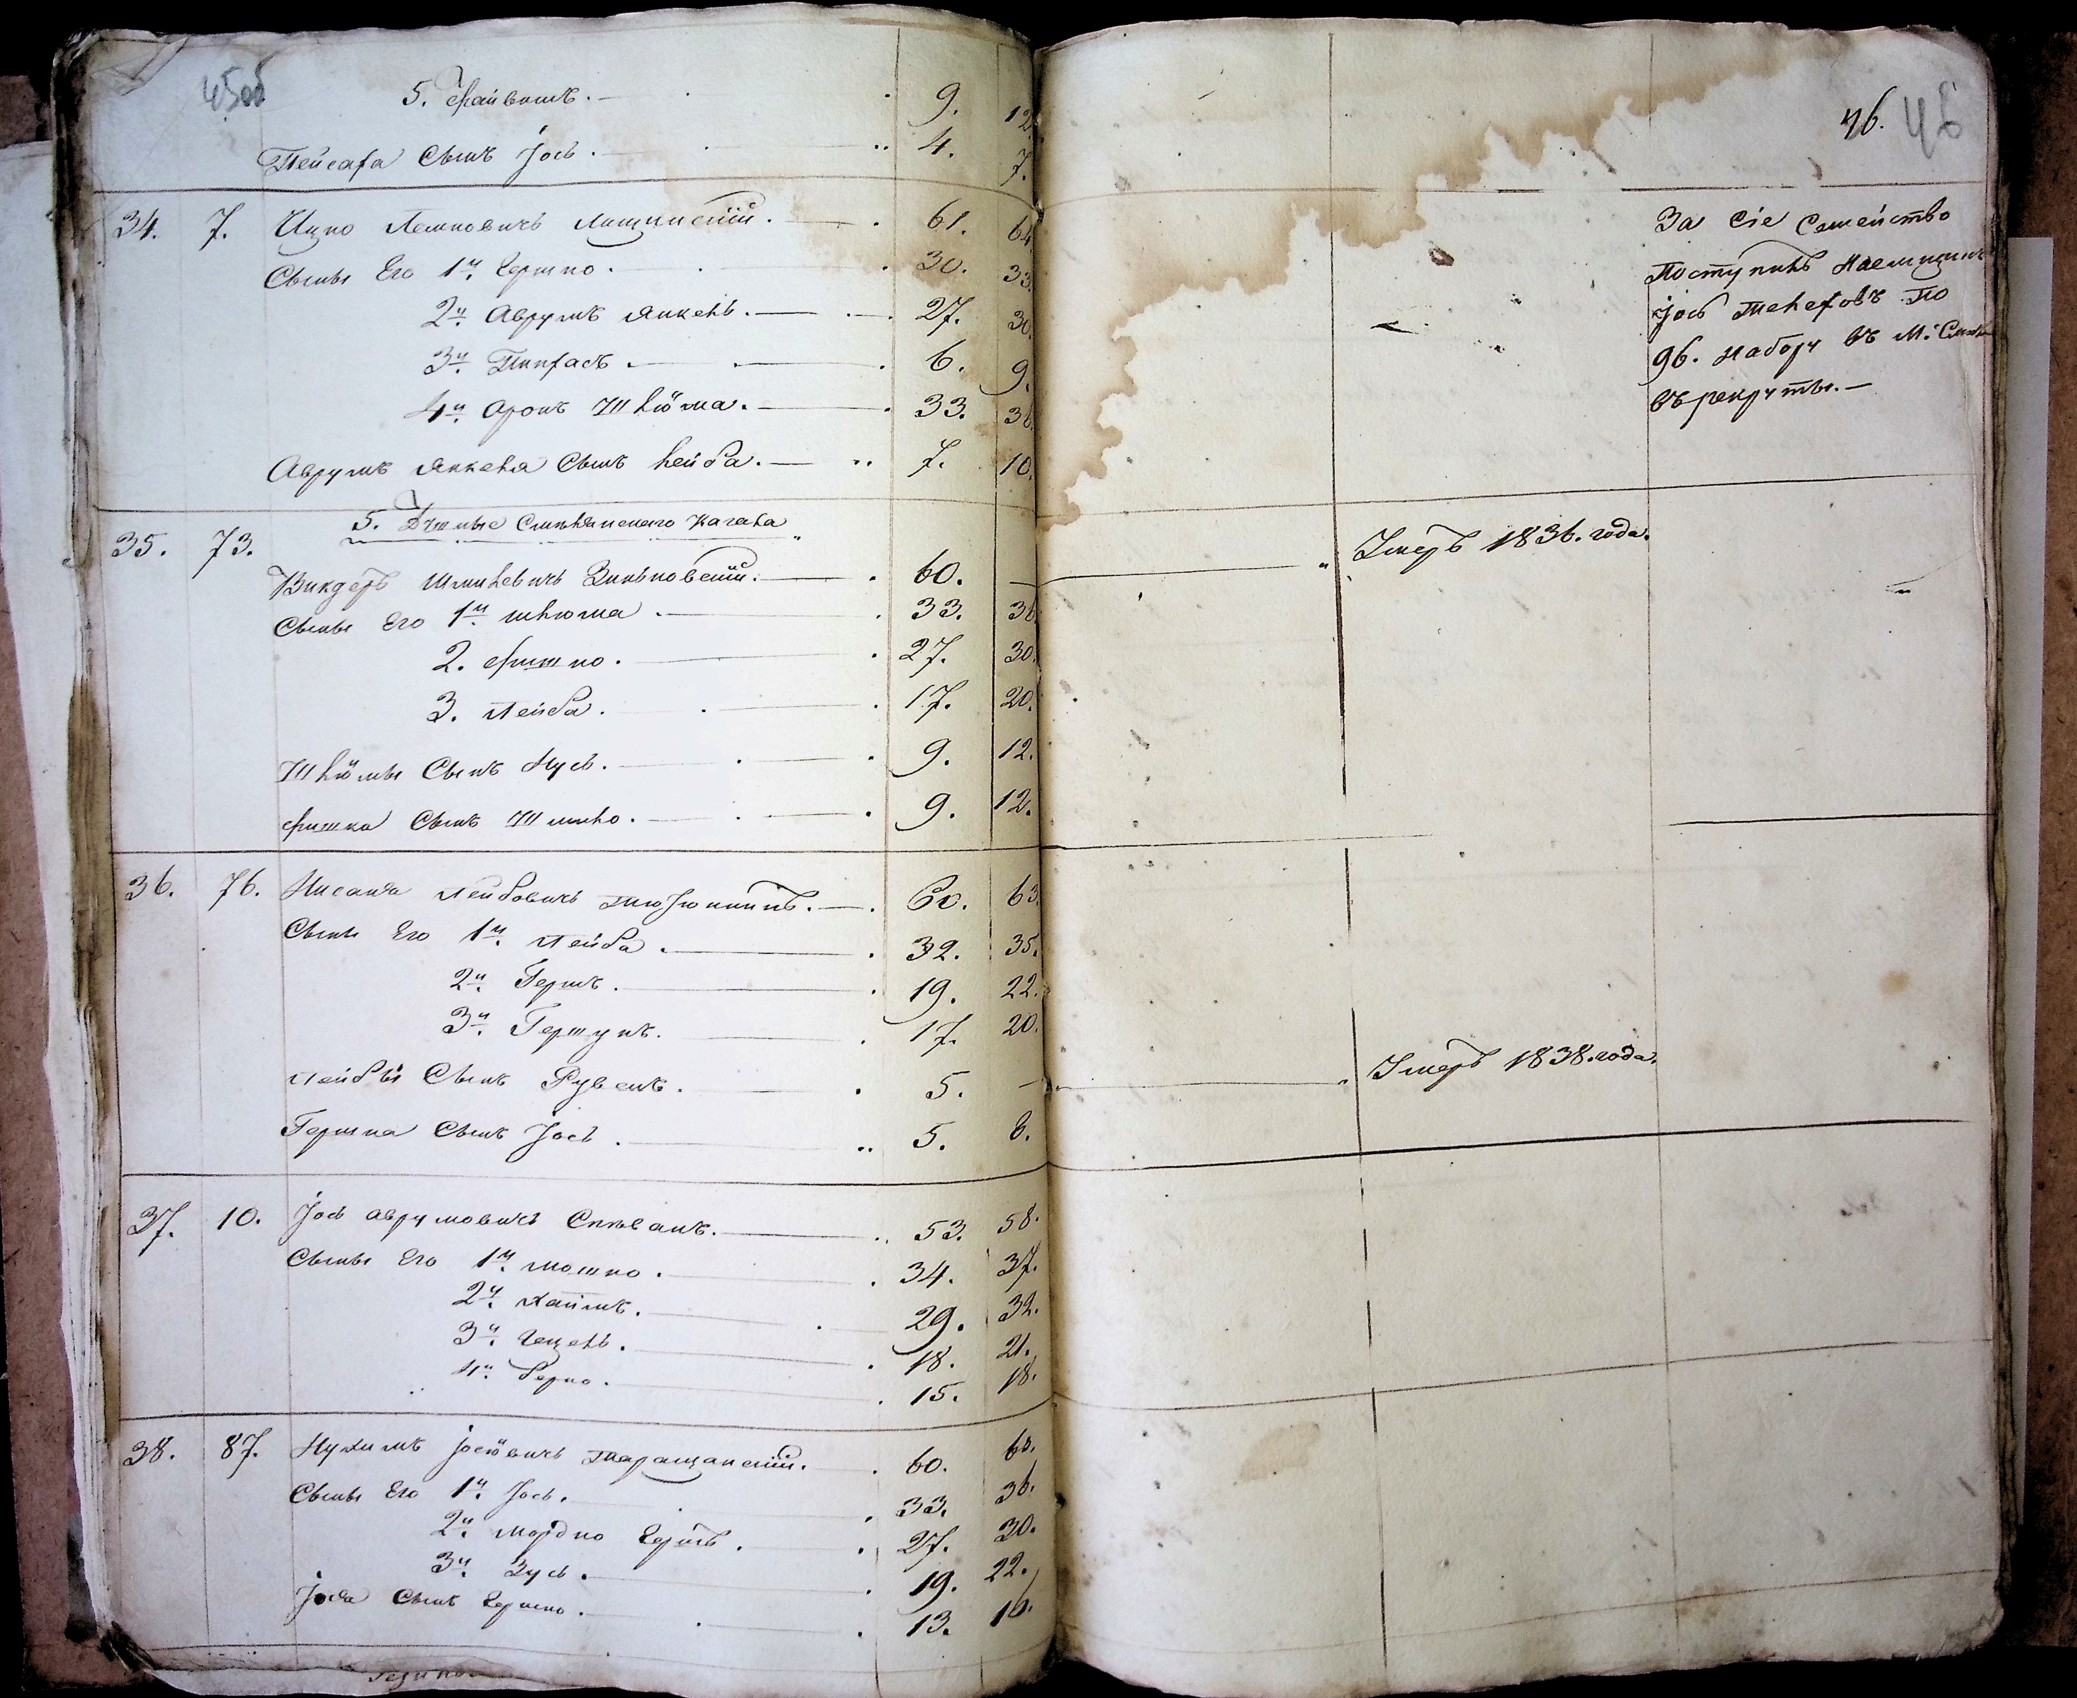 45об
5. Файвишъ. 9. 12.
Пейсаха Сынъ Іось. 4. 7.
34. 7. Ицко Лешковичъ Лищинскій. 61. 64
Сыны Его 1й Гершко. 30. 33.
2й Аврумъ Янкель. 27. 30.
3й Пинхасъ. 6. 9.
4й Аронъ Шлёма. 33. 36.
Аврумъ Янкеля Сынъ Лейба. 7. 10.
5. Душные Смѣлянского Кагала
35. 73.
Шмилевичъ Зиньковскій. 60. — Умеръ 1836. года.
Сыны Его 1й Шлюма. 33. 36
2. Фишко. 27. 30.
3. Лейба. 17. 20.
Шлёмы Сынъ Нусь. 9. 12.
Фишка Сынъ Шмило. 9. 12.
36. 76. Нисанъ Лейбовичъ 60. 63.
Сыны Его 1й Лейба. 32. 35.
2й Гершъ. 19. 22.
3й Гершунъ. 17. 20.
Лейбы Сынъ Рувенъ. 5. — Умеръ 1838. года.
Гершка Сынъ Іось. 5. 8.
37. 10. Іось Аврумовичъ Співакъ. 53. 58.
Сыны Его 1й Мошко. 34. 37.
2й Хаимъ. 29. 32.
3й Гецель. 18. 21.
4й Берко. 15. 18.
38. 87. Нухимъ Іосіовичъ Таращанскій. 60. 63.
Сыны Его 1й Іось. 33. 36.
2й Мордко Гершъ. 27. 30.
3й Зусь. 19. 22.
Іося Сынъ Гершко. 13. 16.
46. 46
За сіе Семейство
Поступилъ Наемщикъ
Іось по
96. Набору въ М. Смѣлѣ
въ рекруты.—